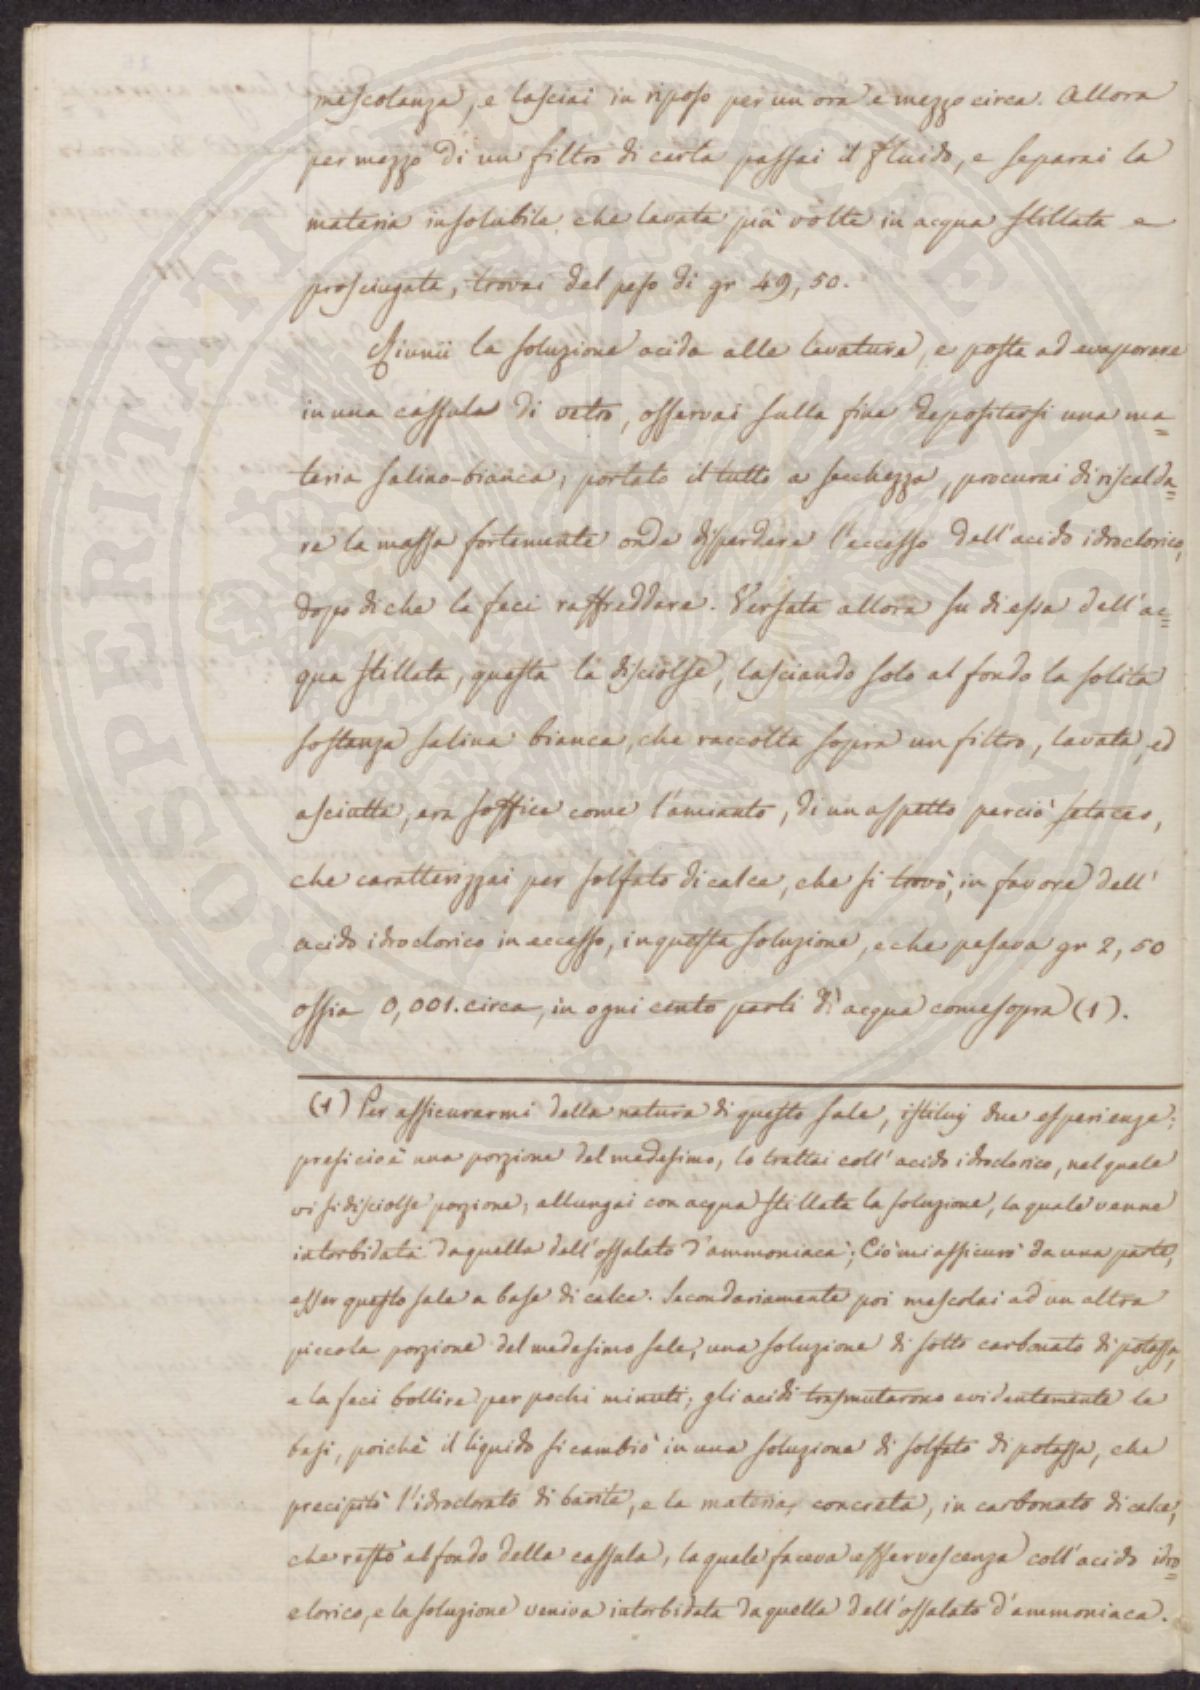 mescolanza, e lasciai in riposo per un ora e mezzo circa. Allora
per mezzo di un filtro di carta passai il fluido, e separai la
materia insolubile che lavata più volte in acqua stillata e
prosciugata, trovai del peso di gr 49,50.
Riunii la soluzione acida alle lavature, e posta ad evaporare
in una cassula di vetro, osservai sulla fine depositarsi una ma=
teria salino-bianca; portato il tutto a secchezza, procurai di riscalda=
re la massa fortemente onde disperdere l'eccesso dell'acido idroclorico,
dopo di che la feci raffreddare. Versata allora su di essa dell'ac=
qua stillata, questa la disciolse, lasciando solo al fondo la solita
sostanza salina bianca, che raccolta sopra un filtro, lavata, ed
asciutta, era soffice come l'amianto, di un aspetto perciò setaceo,
che caratterizzai per solfato di calce, che si trovò, in favore dell'
acido idroclorico in eccesso, in questa soluzione, e che pesava gr 2,50
ossia 0,001. circa, in ogni cento parti di acqua come sopra (1).
(1) Per assicurarmi della natura di questo sale, istituij due esperienze;
presi cioè una porzione del medesimo, lo trattai coll'acido idroclorico, nel quale
vi si disciolse porzione; allungai con acqua stillata la soluzione, la quale venne
intorbidata da quella dell'ossalato d'ammoniaca; Ciò mi assicurò da una parte,
esser questo sale a base di calce. Secondariamente poi mescolai ad un altra
piccola porzione del medesimo sale, una soluzione di sotto carbonato di potassa,
e la feci bollire per pochi minuti; gli acidi trasmutarono evidentemente le
basi, poichè il liquido si cambiò in una soluzione di solfato di potassa, che
precipitò l'idroclorato di barite, e la materia, concreta, in carbonato di calce,
che restò al fondo della cassula, la quale faceva effervescenza coll'acido idro=
clorico, e la soluzione veniva intorbidata da quella dell'ossalato d'ammoniaca.